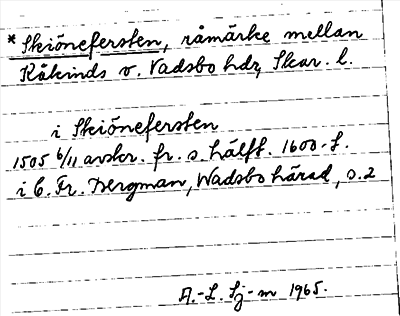 * Skiönefersten, råmärke mellan
Kåkinds o. Vadsbo hdr, Skar. l.
i Skiönefersten
1505 6/11 avskr. fr. s. hälft. 1600-t.
i C. Fr. Bergman, Wadsbo härad, s. 2
A.-L. Sj-m 1965.